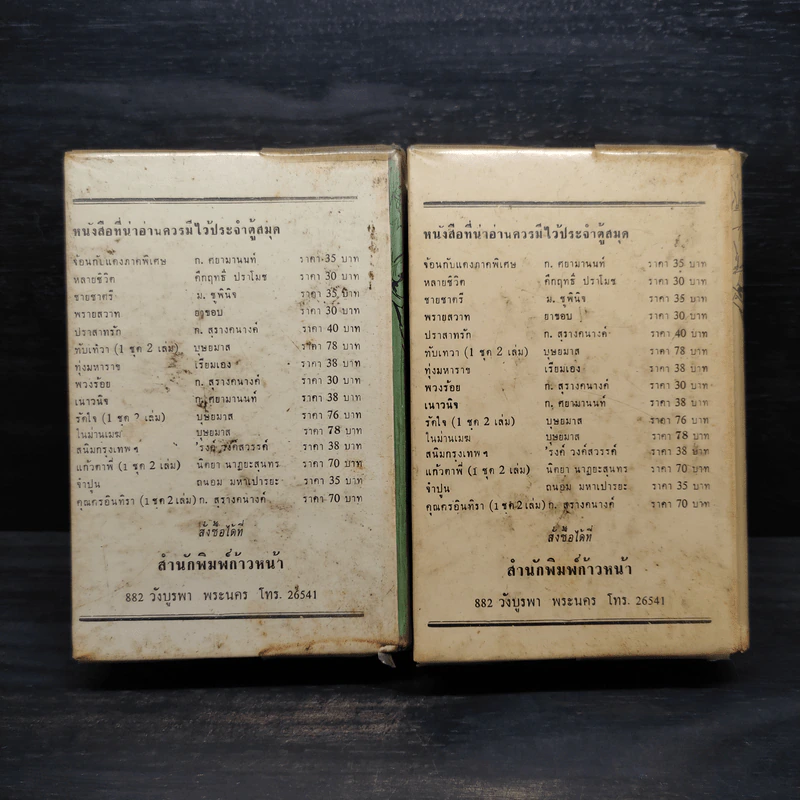 หนังสือที่น่าอ่านควรมีไว้ประจำตู้สมุด
จ้อนกับแดงภาคพิเศษ ก. ศยามานนท์ ราคา 35 บาท
หลายชีวิต คึกฤทธิ์ ปราโมช ราคา 30 บาท
ชายชาตรี ม. ชูพินิจ ราคา 35 บาท
พรายสวาท ยาขอบ ราคา 30 บาท
ปราสาทรัก ก. สุรางคนางค์ ราคา 40 บาท
ทับเทวา (1 ชุด 2 เล่ม) บุษยมาส ราคา 78 บาท
ทุ่งมหาราช เรียมเอง ราคา 38 บาท
พวงร้อย ก. สุรางคนางค์ ราคา 30 บาท
เนาวนิจ ก. ศยามานนท์ ราคา 38 บาท
รัดใจ (1 ชุด 2 เล่ม) บุษยมาส ราคา 76 บาท
ในม่านเมฆ บุษยมาส ราคา 78 บาท
สนิมกรุงเทพฯ 'รงค์ วงศ์สวรรค์ ราคา 38 บาท
แก้วตาพี่ (1 ชุด 2 เล่ม) นิตยา นาฏยะสุนทร ราคา 70 บาท
จำปูน ถนอม มหาเปารยะ ราคา 35 บาท
คุณครูอินทิรา (1 ชุด 2 เล่ม) ก. สุรางคนางค์ ราคา 70 บาท
สั่งซื้อได้ที่
สำนักพิมพ์ก้าวหน้า
882 วังบูรพา พระนคร โทร. 26541
หนังสือที่น่าอ่านควรมีไว้ประจำตู้สมุด
จ้อนกับแดงภาคพิเศษ ก. ศยามานนท์ ราคา 35 บาท
หลายชีวิต คึกฤทธิ์ ปราโมช ราคา 30 บาท
ชายชาตรี ม. ชูพินิจ ราคา 35 บาท
พรายสวาท ยาขอบ ราคา 30 บาท
ปราสาทรัก ก. สุรางคนางค์ ราคา 40 บาท
ทับเทวา (1 ชุด 2 เล่ม) บุษยมาส ราคา 78 บาท
ทุ่งมหาราช เรียมเอง ราคา 38 บาท
พวงร้อย ก. สุรางคนางค์ ราคา 30 บาท
เนาวนิจ ก. ศยามานนท์ ราคา 38 บาท
รัดใจ (1 ชุด 2 เล่ม) บุษยมาส ราคา 76 บาท
ในม่านเมฆ บุษยมาส ราคา 78 บาท
สนิมกรุงเทพฯ 'รงค์ วงศ์สวรรค์ ราคา 38 บาท
แก้วตาพี่ (1 ชุด 2 เล่ม) นิตยา นาฏยะสุนทร ราคา 70 บาท
จำปูน ถนอม มหาเปารยะ ราคา 35 บาท
คุณครูอินทิรา (1 ชุด 2 เล่ม) ก. สุรางคนางค์ ราคา 70 บาท
สั่งซื้อได้ที่
สำนักพิมพ์ก้าวหน้า
882 วังบูรพา พระนคร โทร. 26541